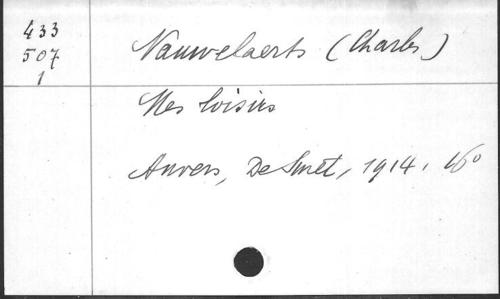 433
507
1
Nauwelaerts (Charles)
Mes loisirs
Anvers, De Smet, 1914, 16°